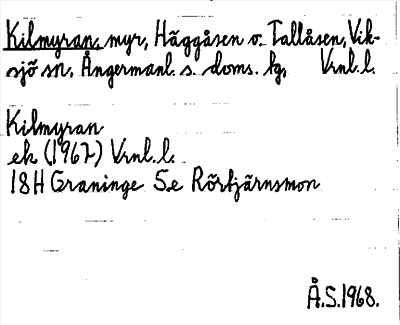 Kilmyran, myr, Häggåsen o. Tallåsen, Vik-
sjö sn, Ångermanl. s. doms. fg, Vrnl. l.
Kilmyran
ek (1967) Vrnl. l.
18H Graninge 5e Rörtjärnsmon
Å.S. 1968.